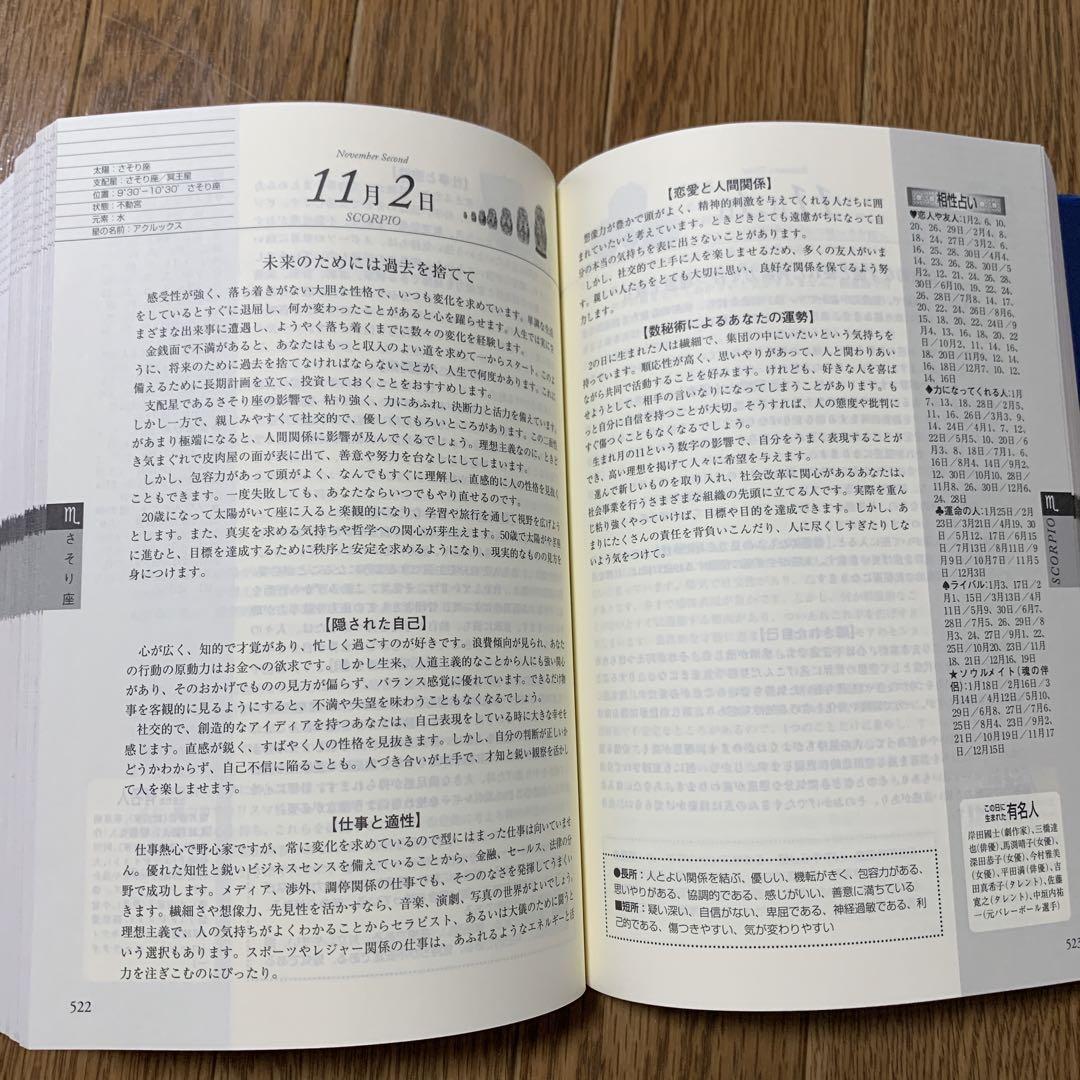 太陽：さそり座
支配星：さそり座／冥王星
位置：9°30'－10°30' さそり座
状態：不動宮
元素：水
星の名前：アクルックス
November Second
11月2日
SCORPIO
未来のためには過去を捨てて
感受性が強く、落ち着きがない大胆な性格で、いつも変化を求めています。単調な生活
をしているとすぐに退屈し、何か変わったことがあると心を躍らせます。人生では実にさ
まざまな出来事に遭遇し、ようやく落ち着くまでに数々の変化を経験します。
金銭面で不満があると、あなたはもっと収入のよい道を求めて一からスタート。このよ
うに、将来のために過去を捨てなければならないことが、人生で何度かあります。これに
備えるために長期計画を立て、投資しておくことをおすすめします。
支配星であるさそり座の影響で、粘り強く、力にあふれ、決断力と活力を備えています。
しかし一方で、親しみやすくて社交的で、優しくてもろいところがあります。この二面性
があまり極端になると、人間関係に影響が及んでくるでしょう。理想主義なのに、ときど
き気まぐれで皮肉屋の面が表に出て、善意や努力を台なしにしてしまいます。
しかし、包容力があって頭がよく、なんでもすぐに理解し、直感的に人の性格を見抜く
こともできます。一度失敗しても、あなたならいつでもやり直せるのです。
20歳になって太陽がいて座に入ると楽観的になり、学習や旅行を通して視野を広げよう
とします。また、真実を求める気持ちや哲学への関心が芽生えます。50歳で太陽がやぎ座
に進むと、目標を達成するために秩序と安定を求めるようになり、現実的なものの見方を
身につけます。
【隠された自己】
心が広く、知的で才覚があり、忙しく過ごすのが好きです。浪費傾向が見られ、あなた
の行動の原動力はお金への欲求です。しかし生来、人道主義的なことから人にも強い関心
があり、そのおかげでものの見方が偏らず、バランス感覚に優れています。できるだけ物
事を客観的に見るようにすると、不満や失望を味わうこともなくなるでしょう。
社交的で、創造的なアイディアを持つあなたは、自己表現をしている時に大きな幸せを
感じます。直感が鋭く、すばやく人の性格を見抜きます。しかし、自分の判断が正しいか
どうかわからず、自己不信に陥ることも。人づき合いが上手で、才知と鋭い観察を活かし
て人を楽しませます。
【仕事と適性】
仕事熱心で野心家ですが、常に変化を求めているので型にはまった仕事は向いていませ
ん。優れた知性と鋭いビジネスセンスを備えていることから、金融、セールス、法律の分
野で成功します。メディア、渉外、調停関係の仕事でも、そつのなさを発揮してうまくい
きます。繊細さや想像力、先見性を活かすなら、音楽、演劇、写真の世界がよいでしょう。
理想主義で、人の気持ちがよくわかることからセラピスト、あるいは大儀のために闘うと
いう選択もあります。スポーツやレジャー関係の仕事は、あふれるようなエネルギーと活
力を注ぎこむのにぴったり。
522
さそり座
【恋愛と人間関係】
想像力が豊かで頭がよく、精神的刺激を与えてくれる人たちに囲
まれていたいと考えています。ときどきとても遠慮がちになって自
分の本当の気持ちを表に出さないことがあります。
しかし、社交的で上手に人を楽しませるため、多くの友人がいま
す。親しい人たちをとても大切に思い、良好な関係を保てるよう努
力します。
【数秘術によるあなたの運勢】
2の日に生まれた人は繊細で、集団の中にいたいという気持ちを
持っています。順応性が高く、思いやりがあって、人と関わりあい
ながら共同で活動することを好みます。けれども、好きな人を喜ば
せようとして、相手の言いなりになってしまうことがあります。も
っと自分に自信を持つことが大切。そうすれば、人の態度や批判に
すぐ傷つくこともなくなるでしょう。
生まれ月の11という数字の影響で、自分をうまく表現することが
でき、高い理想を掲げて人々に希望を与えます。
進んで新しいものを取り入れ、社会改革に関心があるあなたは、
社会事業を行うさまざまな組織の先頭に立てる人です。実際を重ん
じ粘り強くやっていけば、目標や目的を達成できます。しかし、あ
まりにたくさんの責任を背負いこんだり、人に尽くしすぎたりしな
いよう気をつけて。
●長所：人とよい関係を結ぶ、優しい、機転がきく、包容力がある、
思いやりがある、協調的である、感じがいい、善意に満ちている
■短所：疑い深い、自信がない、卑屈である、神経過敏である、利
己的である、傷つきやすい、気が変わりやすい
相性占い
♥恋人や友人：1月2、6、10、
20、26、29日／2月4、8、
18、24、27日／3月2、6、
16、22、25、28、30日／4月
14、23、26、28、30日／5
月2、12、21、24、26、28、
30日／6月10、19、22、24、
26、28日／7月8、14、17、
20、22、24、26日／8月6、
15、18、20、22、24日／9
月4、13、16、18、20、22日
／10月2、11、14、16、
18、20日／11月9、12、14、
16、18日／12月7、10、12、
14、16日
♣力になってくれる人：1月
7、13、18、28日／2月5、
11、16、26日／3月3、9、
14、24日／4月1、7、12、
22日／5月5、10、20日／6
月3、8、18日／7月1、6、
16日／8月4、14日／9月2、
12、30日／10月10、28日／
11月8、26、30日／12月6、
24、28日
♣運命の人：1月25日／2月
23日／3月21日／4月19、30
日／5月1、2、17日／6月15
日／7月13日／8月11日／9
月9日／10月7日／11月5日
／12月3日
♠ライバル：1月3、17日／2
月1、15日／3月13日／4月
11日／5月9、30日／6月7、
28日／7月5、26、29日／8
月3、24、27日／9月1、22、
25日／10月20、23日／11月
18、21日／12月16、19日
★ソウルメイト（魂の伴
侶）：1月18日／2月16日／3
月14日／4月12日／5月10、
29日／6月8、27日／7月6、
25日／8月4、23日／9月2、
21日／10月19日／11月17
日／12月15日
SCORPIO
この日に生まれた有名人
岸田國士（劇作家）、三橋達
也（俳優）、馬渕晴子（女優）、
深田恭子（女優）、今村雅美
（女優）、平田満（俳優）、吉
田真希子（タレント）、佐藤
寛之（タレント）、中垣内祐
一（元バレーボール選手）
523